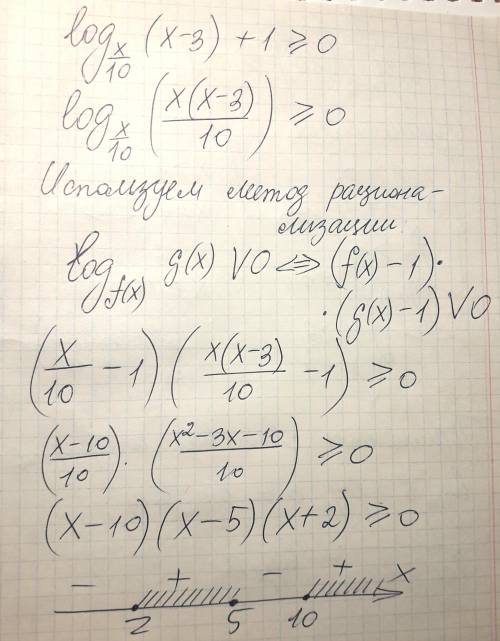 log_{x/10} (x-3) + 1 ⩾ 0
log_{x/10} (x(x-3)/10) ⩾ 0
Исползуем метод рациона-
лизации
log_{f(x)} g(x) V 0 ⇔ (f(x) - 1)·
·(g(x) - 1) V 0
(x/10 - 1) (x(x-3)/10 - 1) ⩾ 0
((x-10)/10) · ((x²-3x-10)/10) ⩾ 0
(x-10)(x-5)(x+2) ⩾ 0
- + - + x
2 5 10